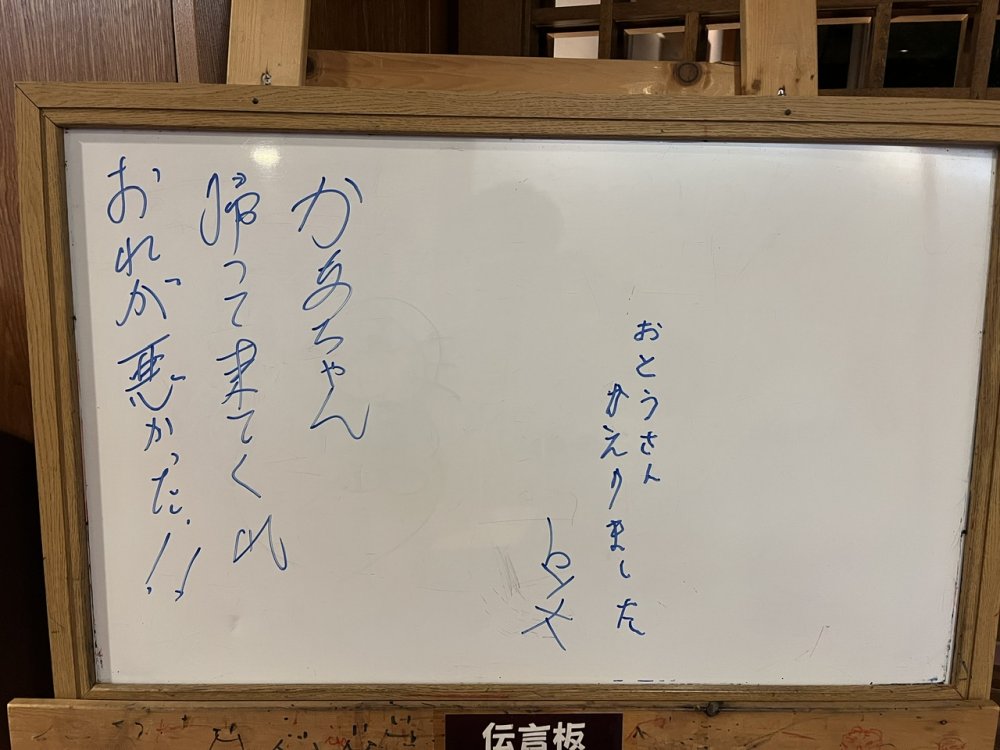 おとうさん
かえりました
かあちゃん
帰って来てくれ
おれが悪かった!!
伝言板